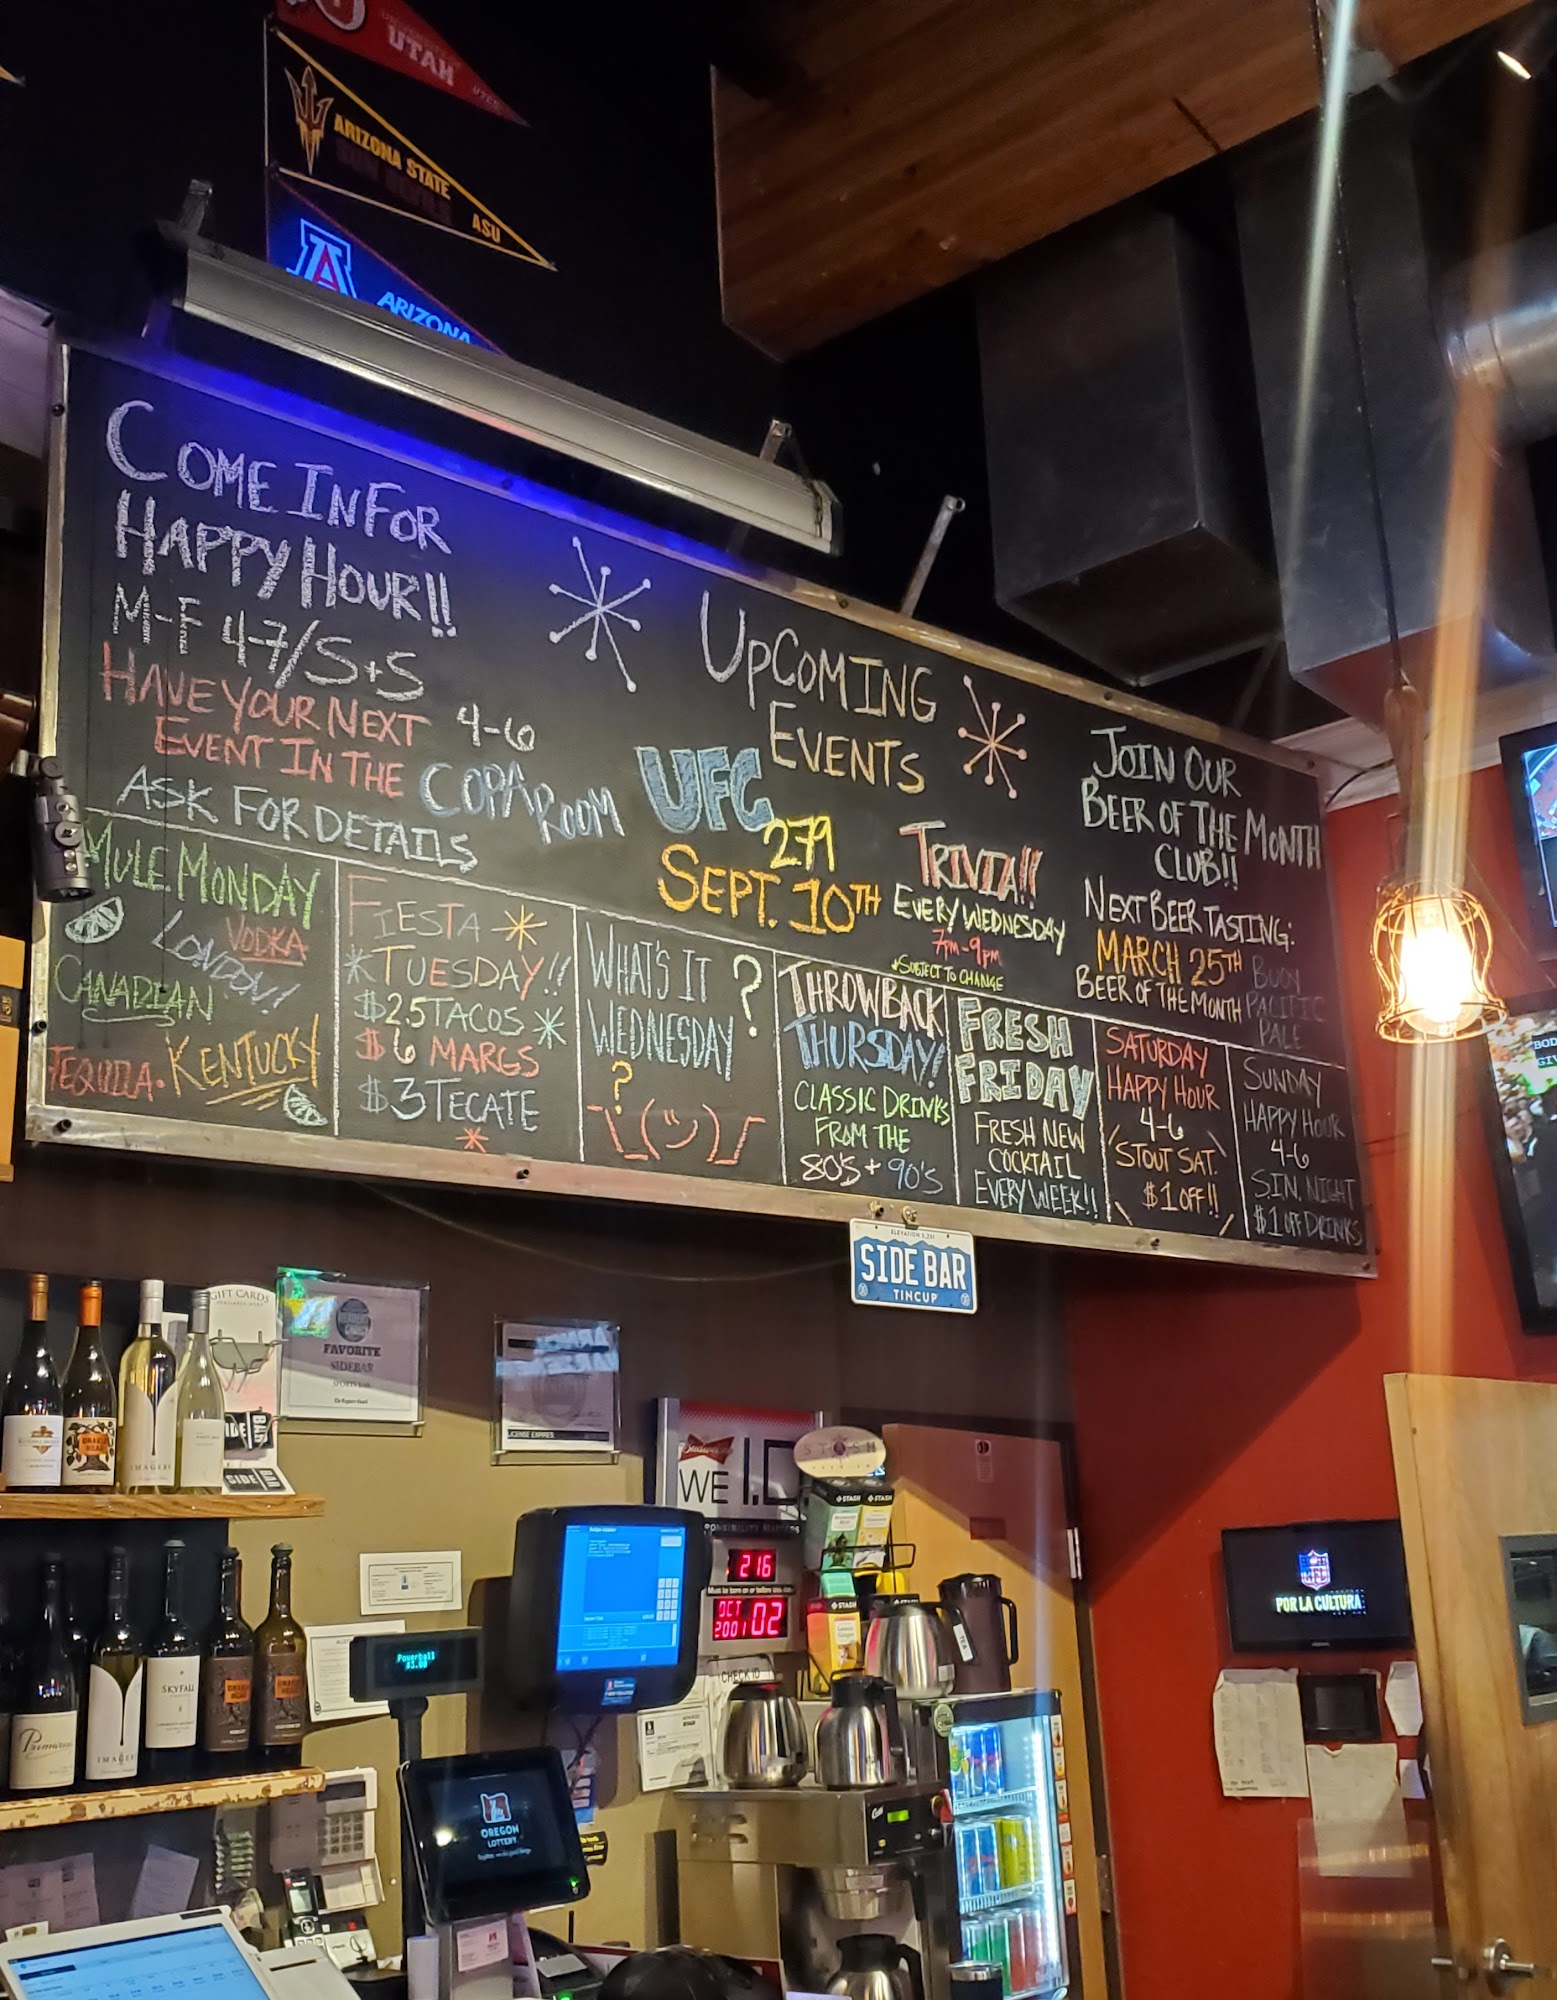 UTAH
UTES
ARIZONA STATE
SUN DEVILS
ASU
A
ARIZONA
COME IN FOR
HAPPY HOUR!!
M-F 4-7/S+S
4-6
HAVE YOUR NEXT
EVENT IN THE
COPA ROOM
ASK FOR DETAILS
UPCOMING
EVENTS
UFC
279
SEPT. 10TH
TRIVIA!!!
EVERY WEDNESDAY
7PM-9PM
*SUBJECT TO CHANGE
JOIN OUR
BEER OF THE MONTH
CLUB!!
NEXT BEER TASTING:
MARCH 25TH
BEER OF THE MONTH
BUOY
PACIFIC
PALE
MULE MONDAY
VODKA
LONDON!
CANADIAN
TEQUILA.
KENTUCKY
FIESTA
TUESDAY!!
$2.5 TACOS
$6 MARGS
$3 TECATE
WHAT'S IT
WEDNESDAY
?
?
THROWBACK
THURSDAY!
CLASSIC DRINKS
FROM THE
80'S + 90'S
FRESH
FRIDAY
FRESH NEW
COCKTAIL
EVERY WEEK!!
SATURDAY
HAPPY HOUR
4-6
STOUT SAT.
$1 OFF!!
SUNDAY
HAPPY HOUR
4-6
S.I.N. NIGHT
$1 OFF DRINKS
SIDE BAR
TINCUP
GIFT CARDS
FAVORITE
SIDEBAR
SPORTS BAR
LICENSE EXPIRES:
SIDE BAR
IMAGERY
Budweiser
WE I.D
STASH
STASH
STASH
216
Must be born on or before this date
OCT
2001 02
CHECK ID
TEA
Powerball
OREGON
LOTTERY
Primarius
IMAGERY
SKYFALL
NFL
POR LA CULTURA